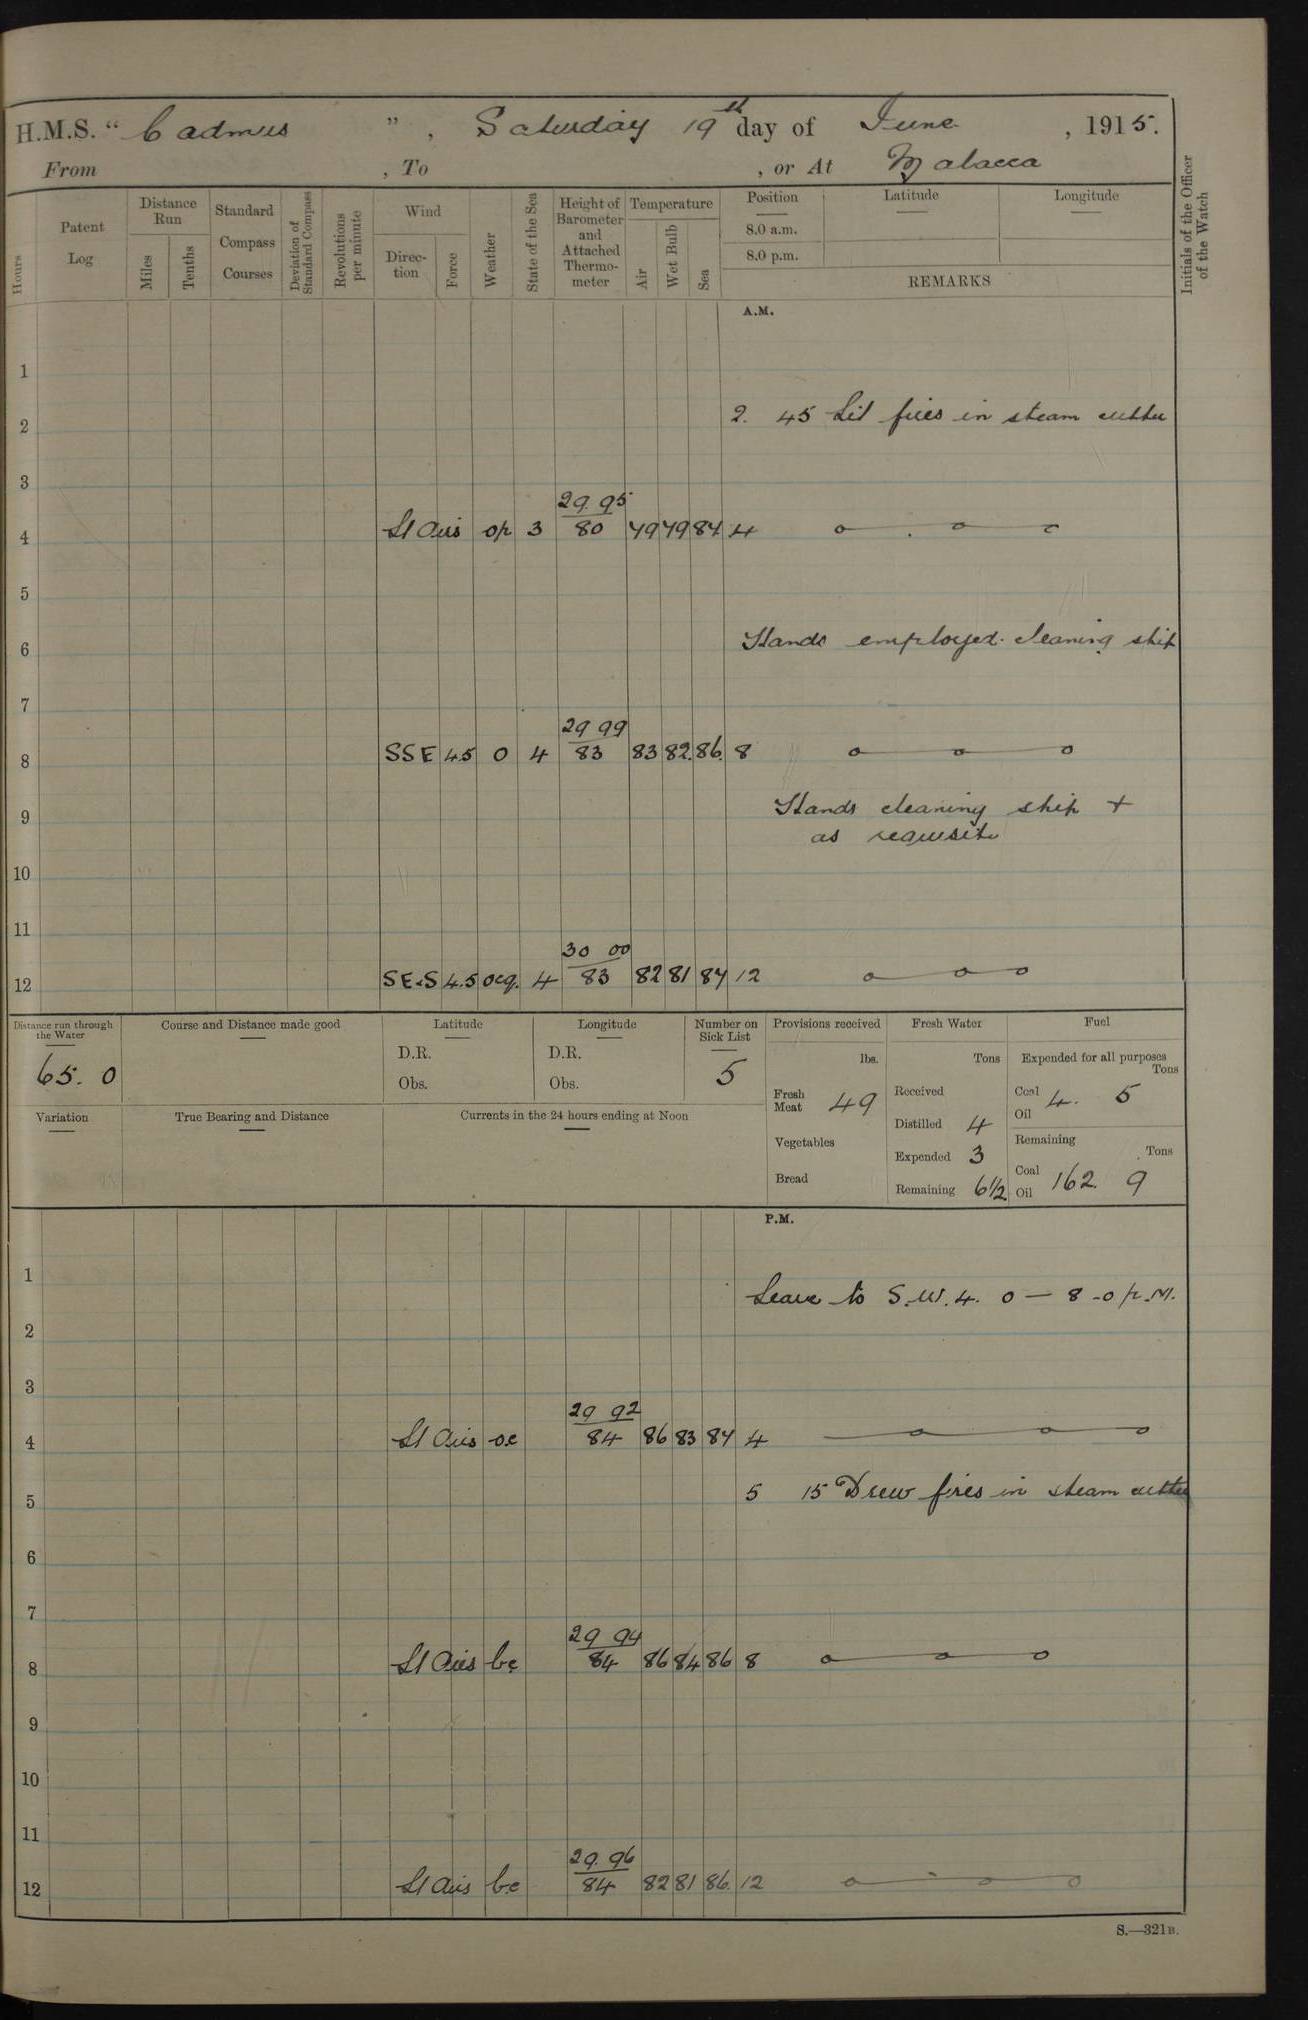 H.M.S. " Cadmus ", Saturday 19th day of June, 1915.
From , To , or At Malacca
Hours
Patent Log
Distance Run
Miles
Tenths
Standard Compass Courses
Deviation of Standard Compass
Revolutions per minute
Wind
Direc-tion
Force
Weather
State of the Sea
Height of Barometer and Attached Thermo-meter
Temperature
Air
Wet Bulb
Sea
Position
8.0 a.m.
8.0 p.m.
Latitude
Longitude
REMARKS
Initials of the Officer of the Watch
A.M.
1
2 2. 45 Lit fires in steam cutter
3
29.95
4 Lt Airs op 3 80 79 79 84 4
5
6 Hands employed cleaning ship
7
29 99
8 SSE 4.5 O 4 83 83 82 86 8
9 Hands cleaning ship +
as requisite
10
11
30 00
12 SE.S 4.5 ocq. 4 83 82 81 84 12
Distance run through the Water
65. 0
Course and Distance made good
Latitude
D.R.
Obs.
Longitude
D.R.
Obs.
Number on Sick List
5
Provisions received
lbs.
Fresh Meat 49
Vegetables
Bread
Fresh Water
Tons
Received
Distilled 4
Expended 3
Remaining 6½
Fuel
Expended for all purposes
Tons
Coal 4. 5
Oil
Remaining
Tons
Coal 162. 9
Oil
Variation
True Bearing and Distance
Currents in the 24 hours ending at Noon
P.M.
1 Leave to S.W. 4. 0 — 8-0 p.M.
2
3
29 92
4 Lt Airs oc 84 86 83 84 4
5 5 15 Drew fires in steam cutter
6
7
29 94
8 Lt Airs bc 84 86 84 86 8
9
10
11
29.96
12 Lt Airs bc 84 82 81 86 12
S.—321B.